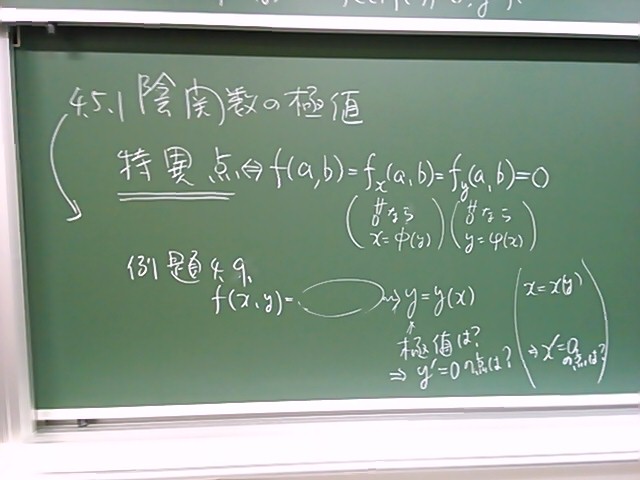 4.5.1 陰関数の極値
特異点 ⇔ f(a,b)=fx(a,b)=fy(a,b)=0
(≠なら x=φ(y)) (≠なら y=φ(x))
例題4.9.
f(x,y)= → y=y(x)
極値は?
⇒ y'=0の点は?
(x=x(y)
⇒ x'=0の点は?)